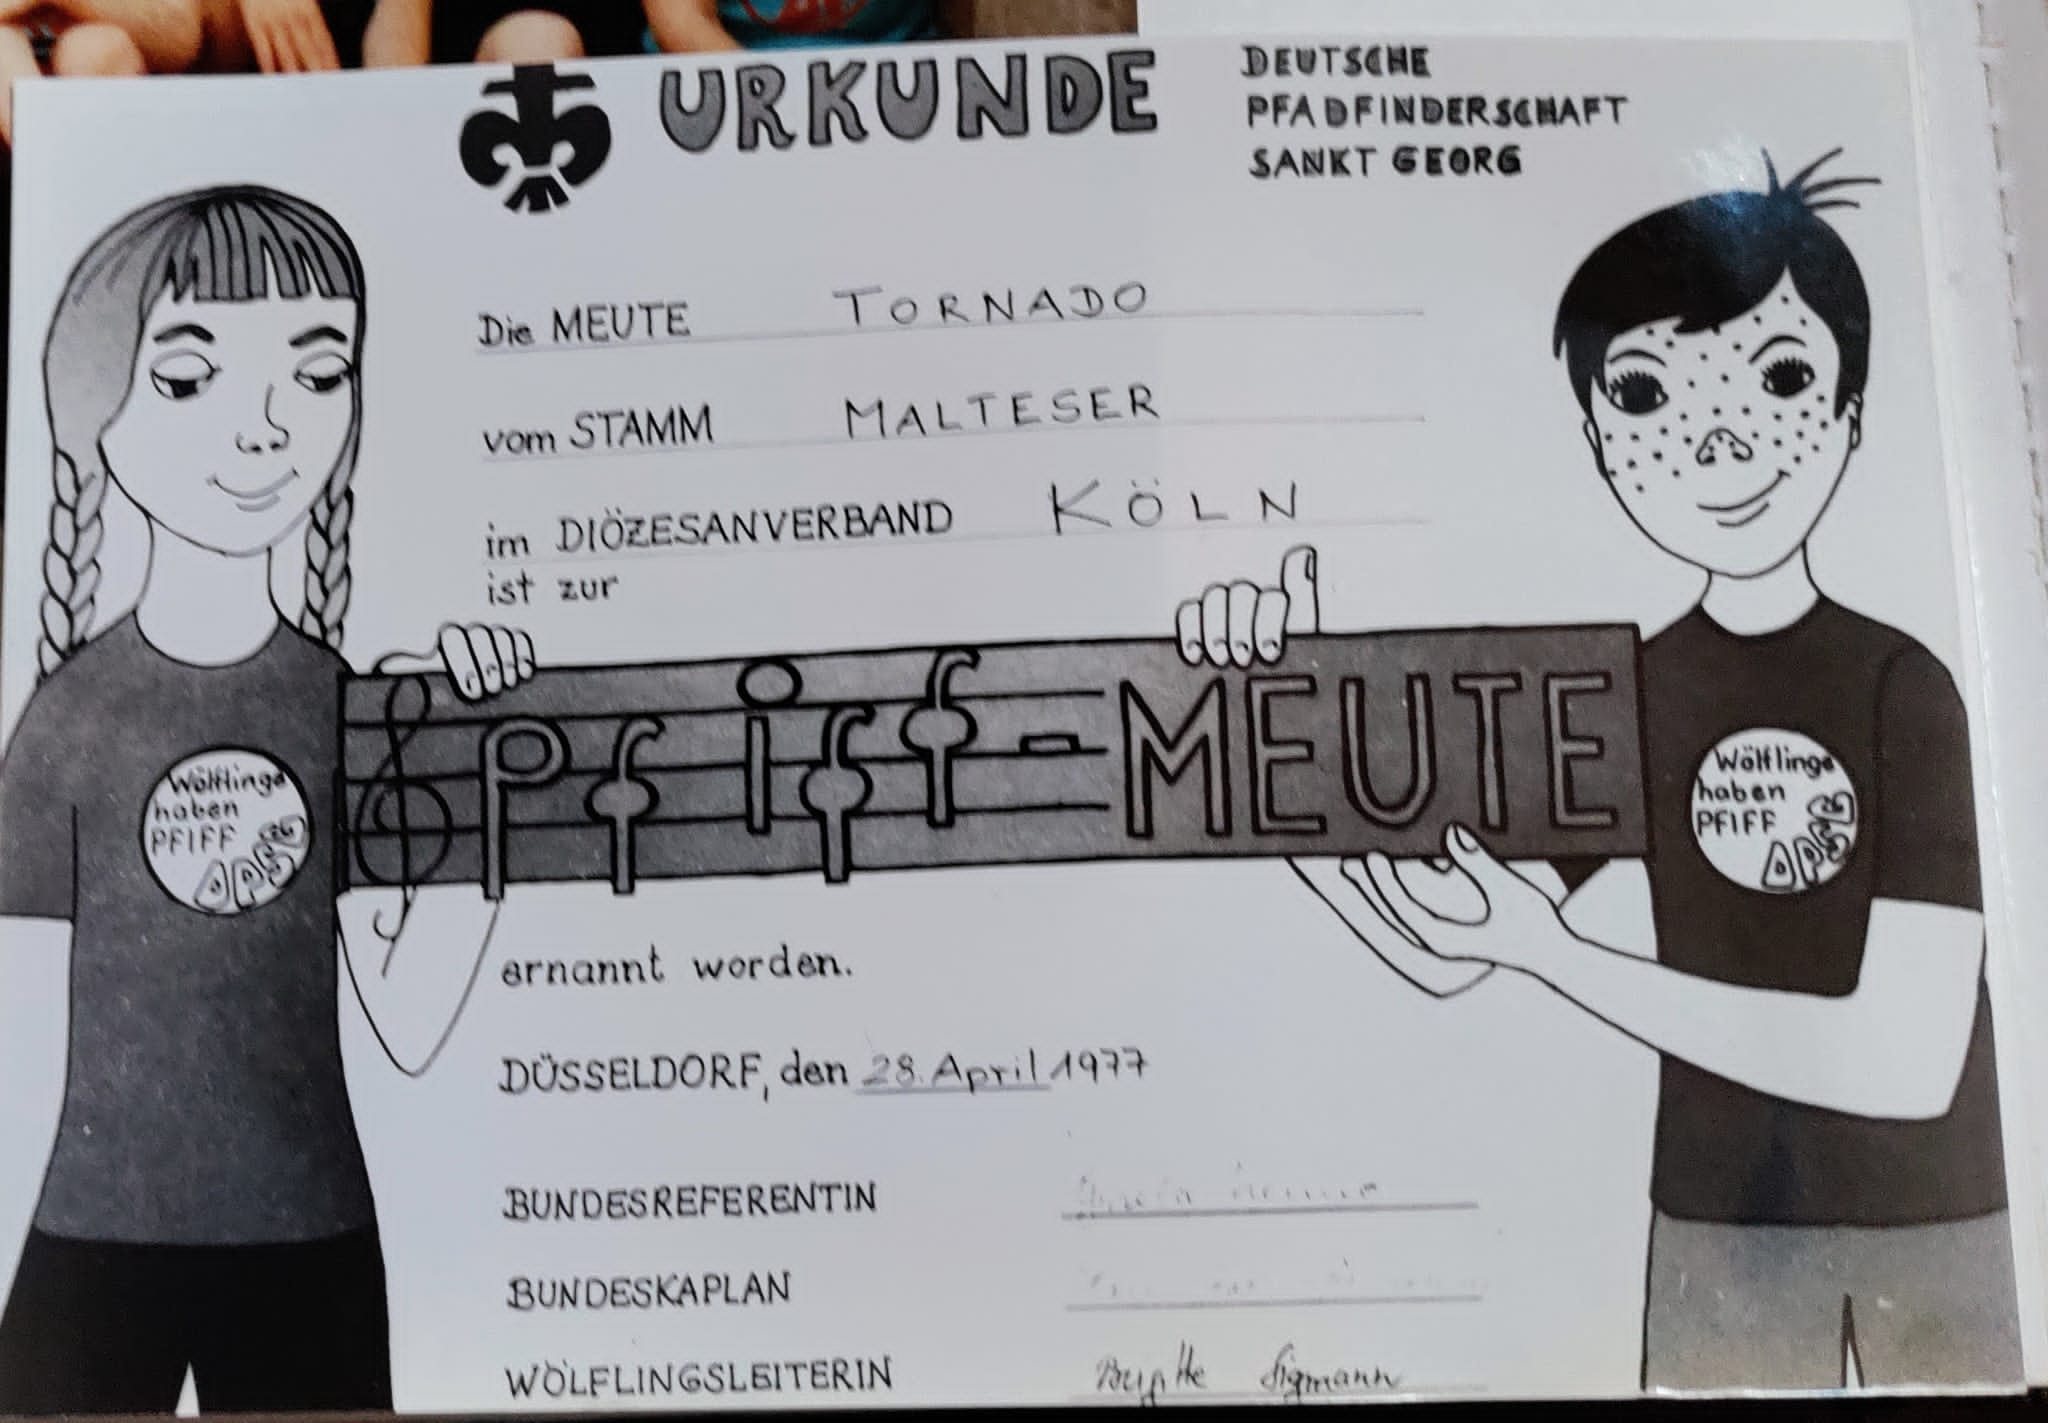 URKUNDE
DEUTSCHE
PFADFINDERSCHAFT
SANKT GEORG
Die MEUTE TORNADO
vom STAMM MALTESER
im DIÖZESANVERBAND KÖLN
ist zur
Pfiff-MEUTE
Wölflinge
haben
PFIFF
DPSG
Wölflinge
haben
PFIFF
DPSG
ernannt worden.
DÜSSELDORF, den 28. April 1977
BUNDESREFERENTIN
BUNDESKAPLAN
WÖLFLINGSLEITERIN Brigitte Sigmann